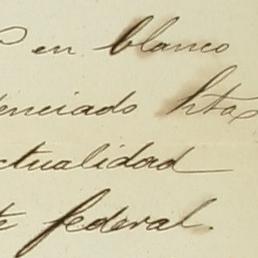 en blanco
enciado htas
ctualidad
te federal.